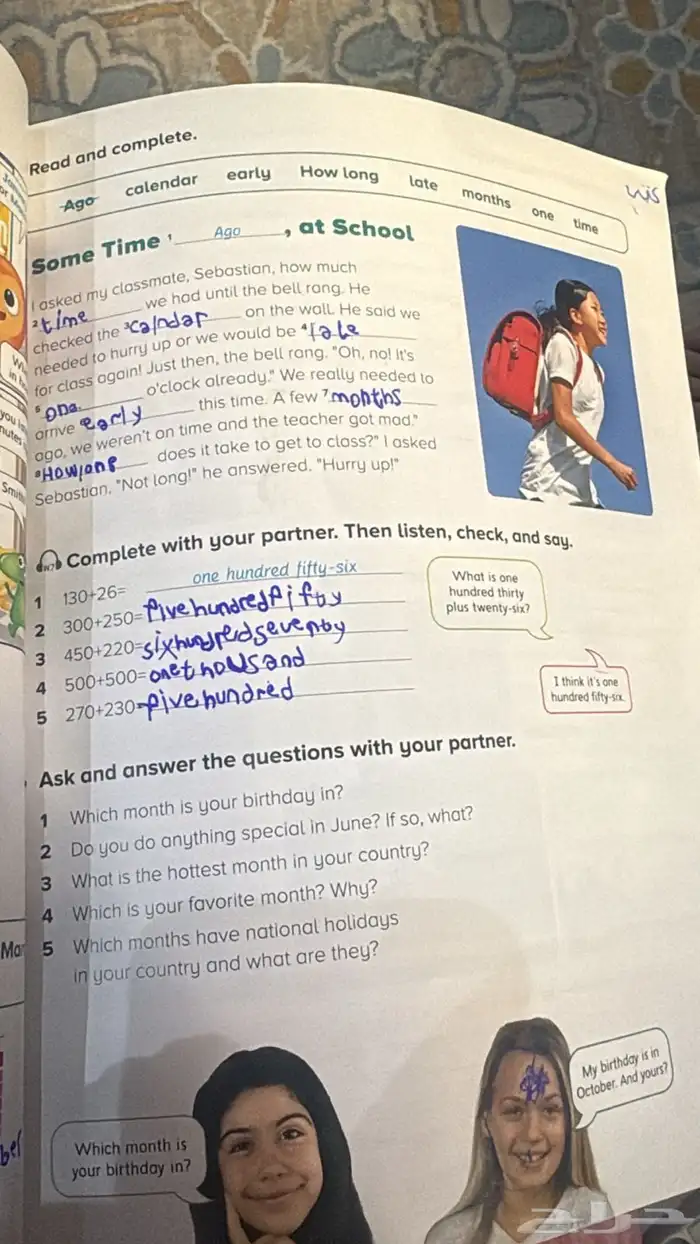 Read and complete.
Ago calendar early How long late months one time
Some Time 1 Ago, at School
I asked my classmate, Sebastian, how much
2 time we had until the bell rang. He
checked the 3 Calndar on the wall. He said we
needed to hurry up or we would be 4 late
for class again! Just then, the bell rang. "Oh, no! It's
5 One o'clock already." We really needed to
arrive early this time. A few 7 months
ago, we weren't on time and the teacher got mad."
8 Howlong does it take to get to class?" I asked
Sebastian. "Not long!" he answered. "Hurry up!"
Complete with your partner. Then listen, check, and say.
1 130+26= one hundred fifty-six
2 300+250= five hundred fifty
3 450+220= six hundred seventy
4 500+500= one thousand
5 270+230= five hundred
What is one
hundred thirty
plus twenty-six?
I think it's one
hundred fifty-six.
Ask and answer the questions with your partner.
1 Which month is your birthday in?
2 Do you do anything special in June? If so, what?
3 What is the hottest month in your country?
4 Which is your favorite month? Why?
5 Which months have national holidays
in your country and what are they?
Which month is
your birthday in?
My birthday is in
October. And yours?
حراج